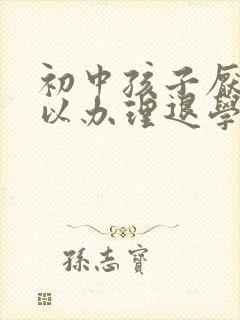 初中孩子厌
以办理退學
孫志寶